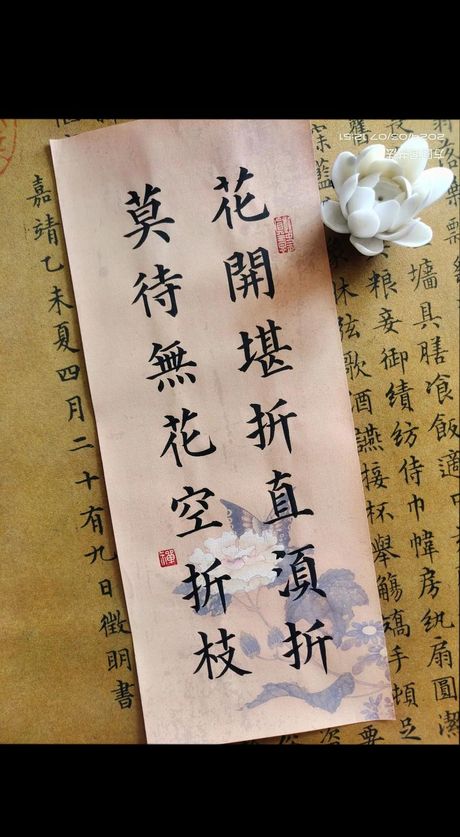 花開堪折直湏折
莫待無花空折枝
墻具膳飡飯適
糧妾御績紡侍巾帷房紈扇圓潔
絃歌酒讌接杯舉觴矯手頓足
嘉靖乙未夏四月二十有九日徵明書
2024/03/07 12:51